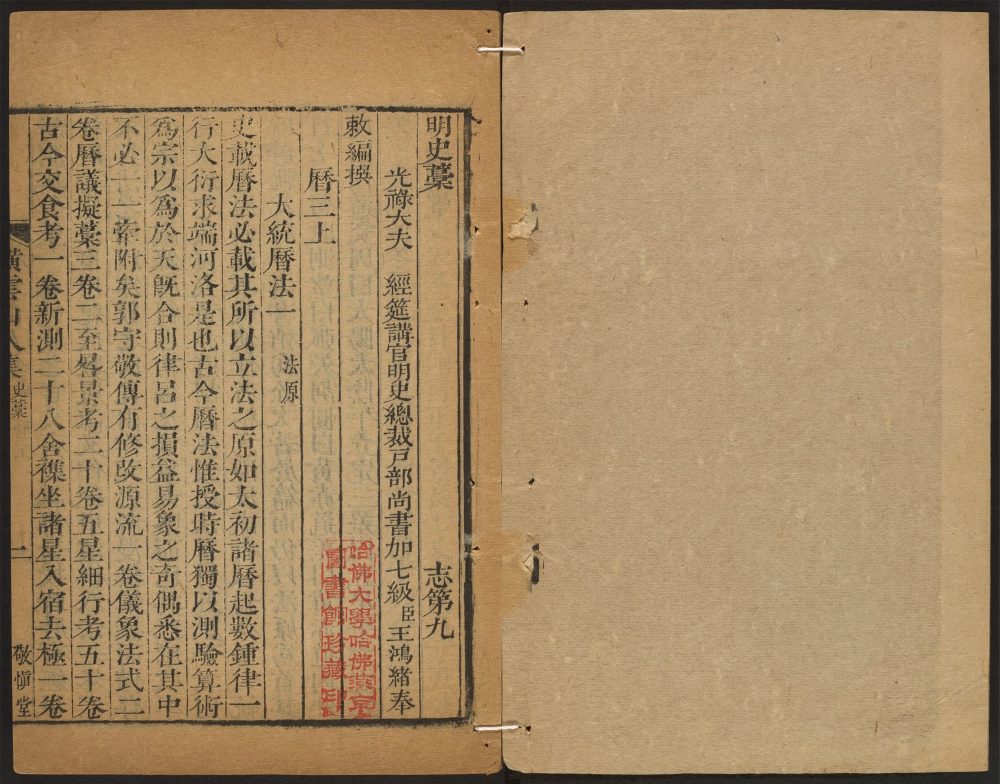 明史藁　志第九
光祿大夫　經筵講官明史總裁戸部尚書加七級臣王鴻緒奉
敕編撰
曆三上
大統曆法一 法原
史載曆法必載其所以立法之原如太初諸曆起數鍾律一
行大衍求端河洛是也古今曆法惟授時曆獨以測驗算術
爲宗以爲於天既合則律呂之損益易象之奇偶悉在其中
不必一一牽附矣郭守敬傳有修改源流一卷儀象法式二
卷曆議擬藁三卷二至晷景考二十卷五星細行考五十卷
古今交食考一卷新測二十八舍襍坐諸星入宿去極一卷
橫雲山人集 史藁
一
敬慎堂
哈佛大學哈佛燕京
圖書館珍藏印